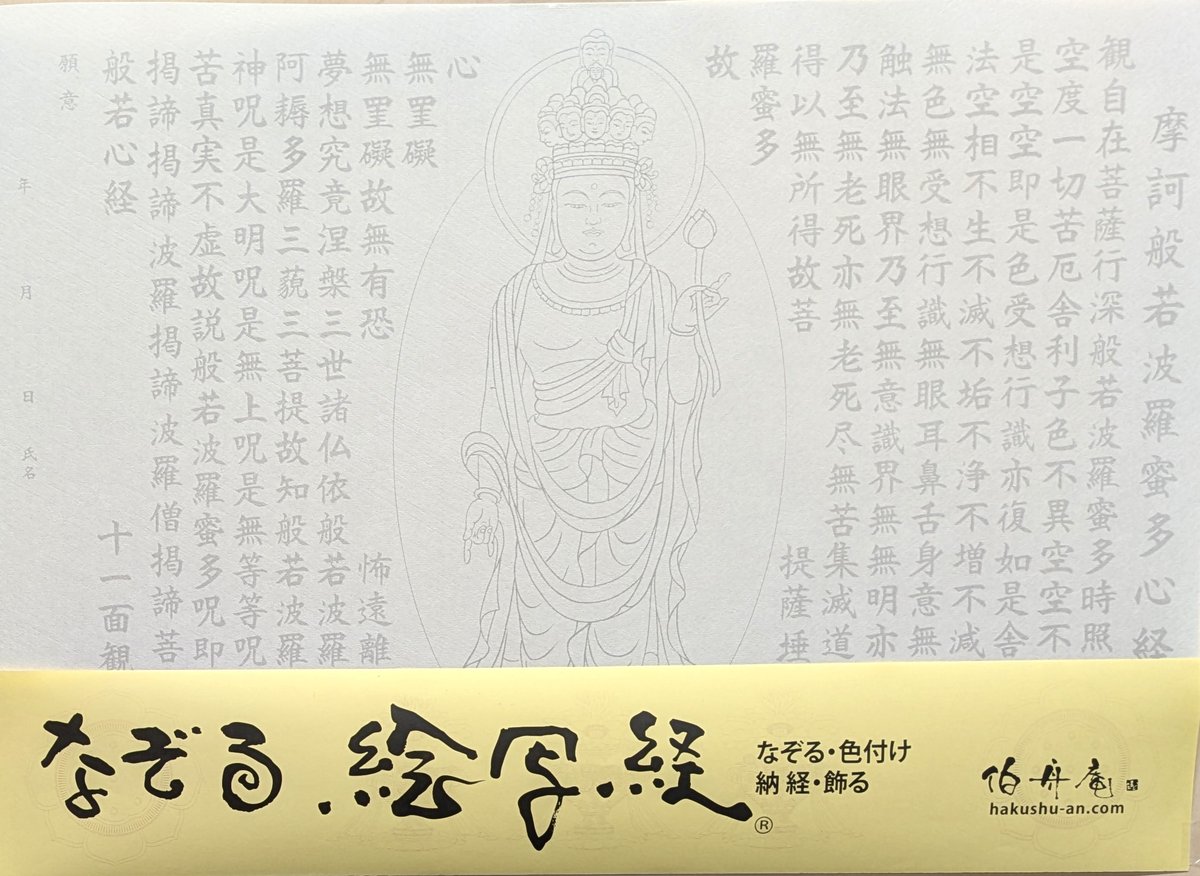 摩訶般若波羅蜜多心経
観自在菩薩行深般若波羅蜜多時照
空度一切苦厄舎利子色不異空空不
是空空即是色受想行識亦復如是舎
法空相不生不滅不垢不浄不増不減
無色無受想行識無眼耳鼻舌身意無
触法無眼界乃至無意識界無無明亦
乃至無老死亦無老死尽無苦集滅道
得以無所得故菩 提薩埵
羅蜜多
故
心
無罣礙
無罣礙故無有恐 怖遠離
夢想究竟涅槃三世諸仏依般若波羅
阿耨多羅三藐三菩提故知般若波羅
神呪是大明呪是無上呪是無等等呪
苦真実不虚故説般若波羅蜜多呪即
掲諦掲諦波羅掲諦波羅僧掲諦菩
般若心経 十一面観
願意
年 月 日 氏名
なぞる絵写経®
なぞる・色付け
納経・飾る
伯舟庵
hakushu-an.com